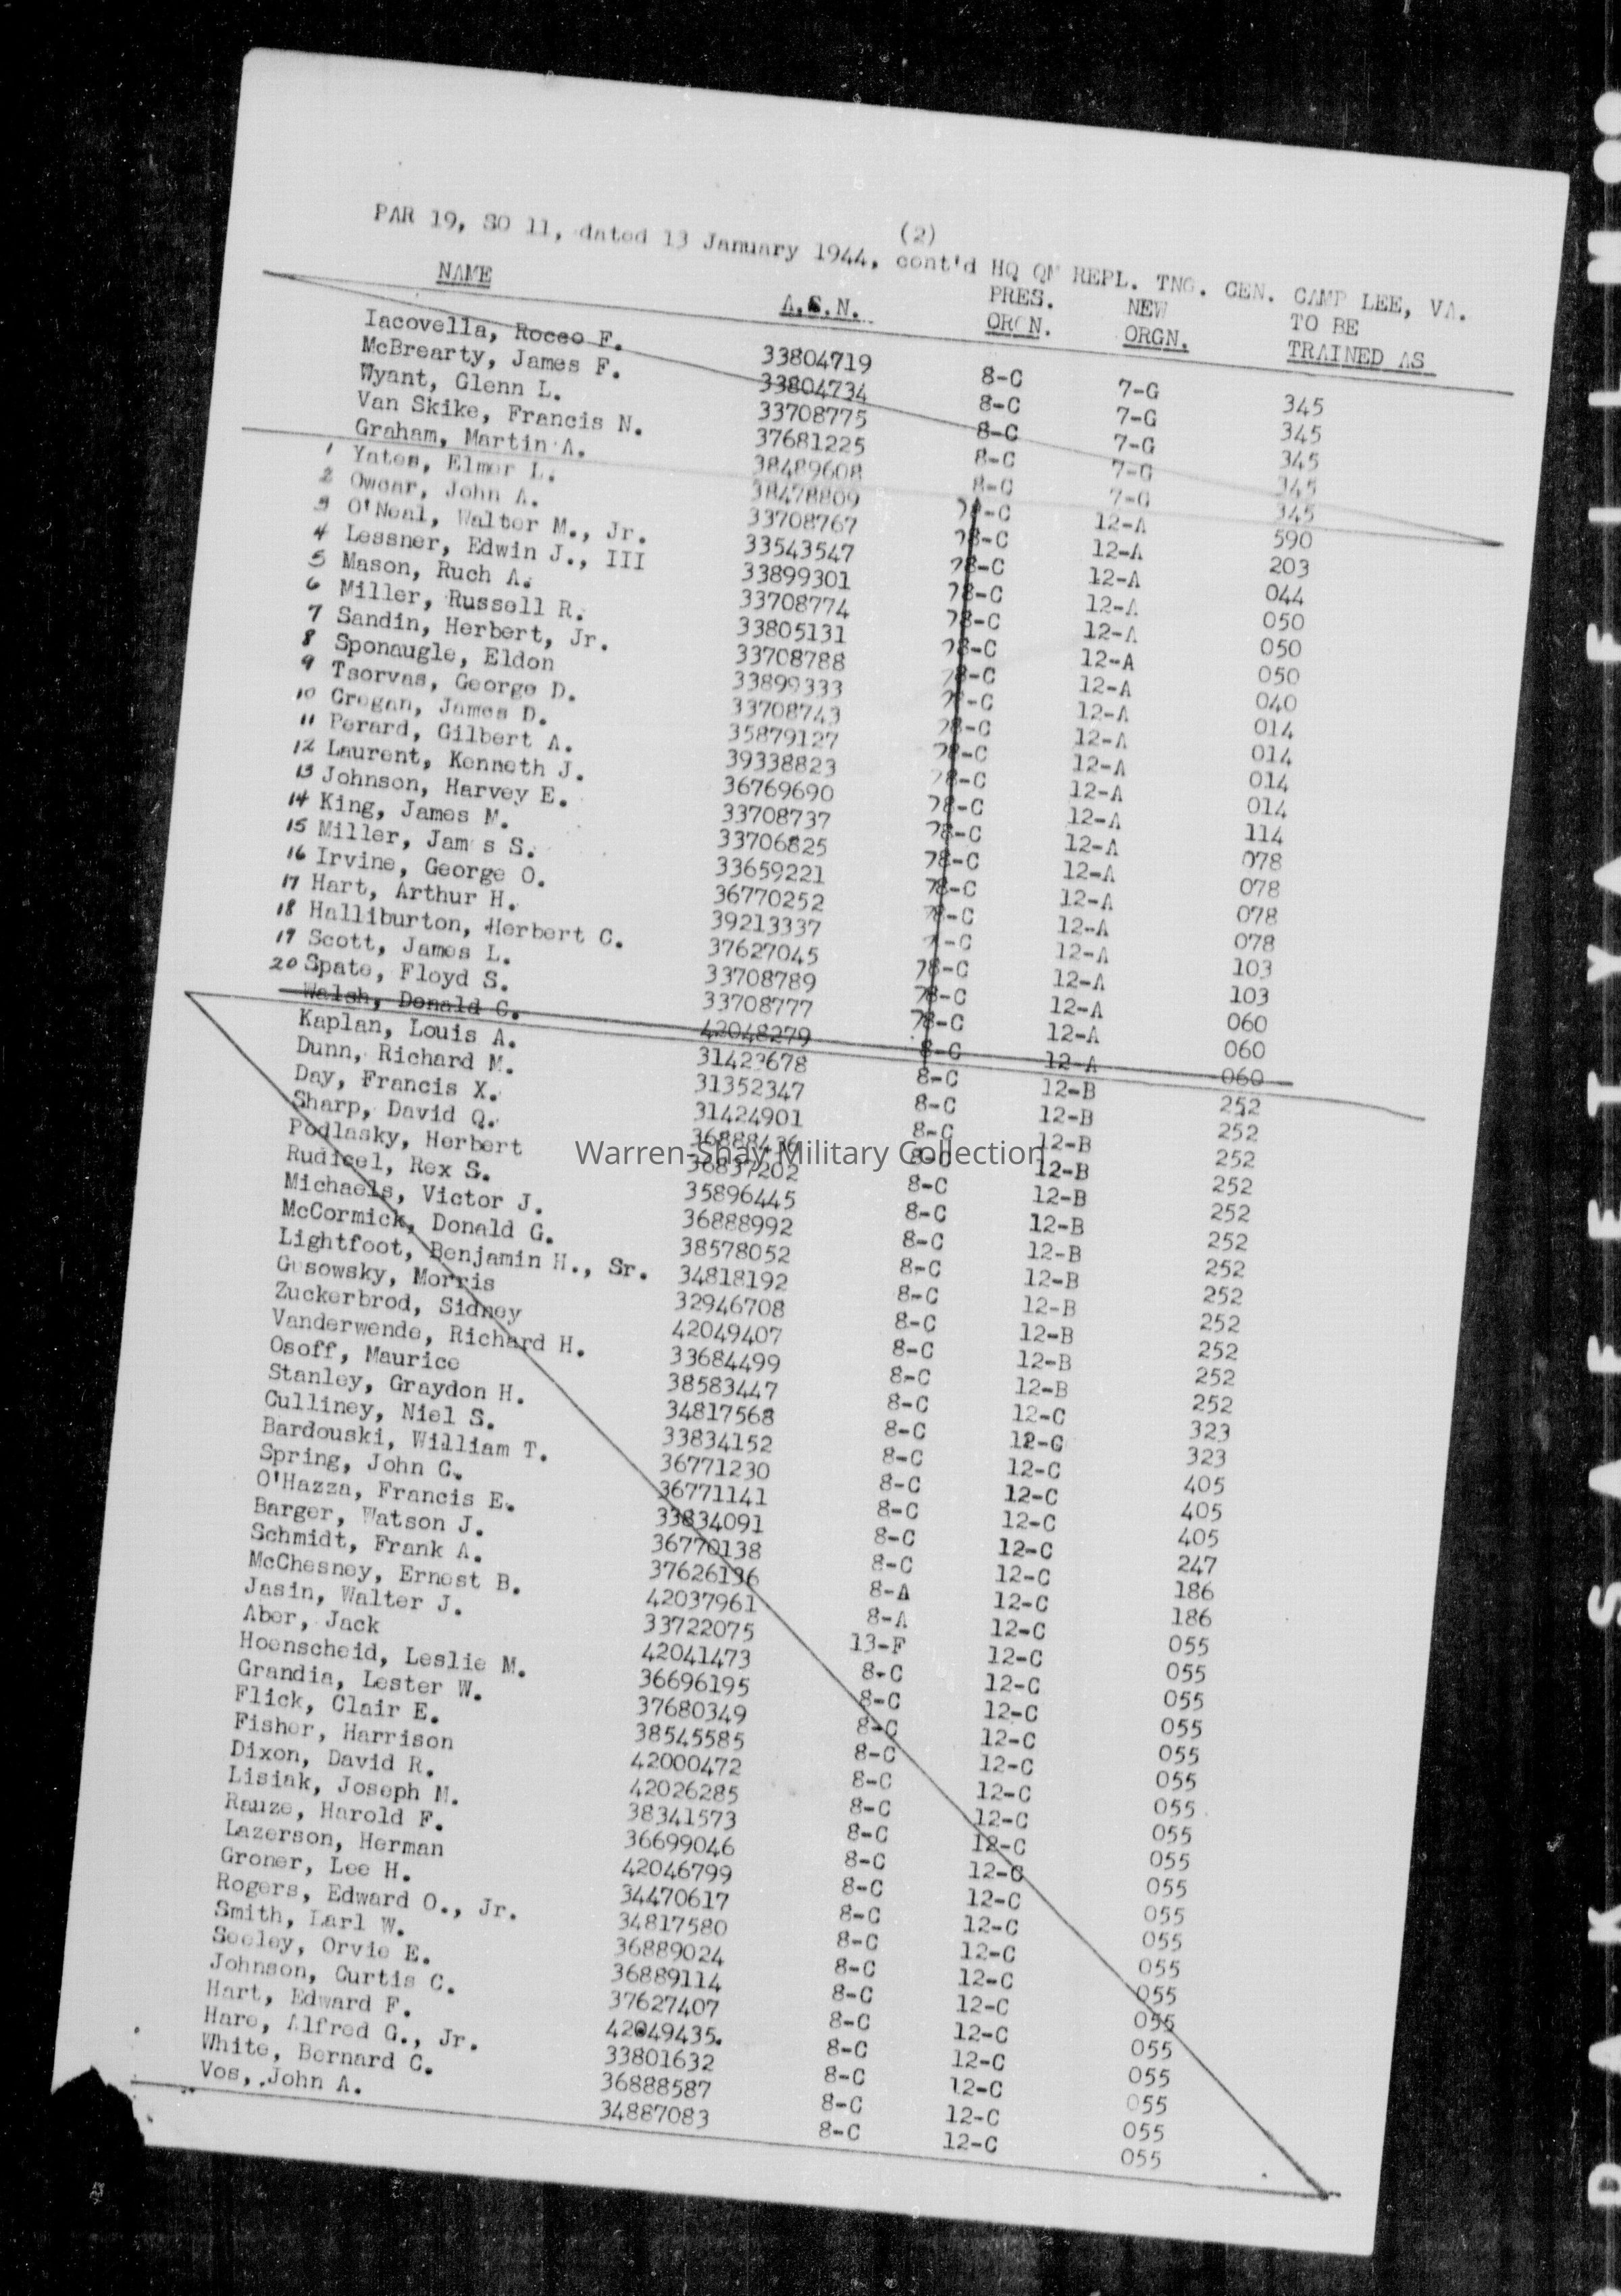 (2)
PAR 19, SO 11, dated 13 January 1944, cont'd HQ QM REPL. TNG. CEN. CAMP LEE, VA.
NAME A.S.N. PRES. ORGN. NEW ORGN. TO BE TRAINED AS
Iacovella, Rocco F. 33804719 8-C 7-G 345
McBrearty, James F. 33804734 8-C 7-G 345
Wyant, Glenn L. 33708775 8-C 7-G 345
Van Skike, Francis N. 37681225 8-C 7-G 345
Graham, Martin A. 38489608 8-C 7-G 345
1 Yates, Elmer L. 38478809 78-C 12-A 590
2 Owcar, John A. 33708767 78-C 12-A 203
3 O'Neal, Walter M., Jr. 33543547 78-C 12-A 044
4 Lessner, Edwin J., III 33899301 78-C 12-A 050
5 Mason, Ruch A. 33708774 78-C 12-A 050
6 Miller, Russell R. 33805131 78-C 12-A 050
7 Sandin, Herbert, Jr. 33708788 78-C 12-A 040
8 Sponaugle, Eldon 33899333 78-C 12-A 014
9 Tsorvas, George D. 33708743 78-C 12-A 014
10 Crogan, James D. 35879127 78-C 12-A 014
11 Perard, Gilbert A. 39338823 78-C 12-A 014
12 Laurent, Kenneth J. 36769690 78-C 12-A 114
13 Johnson, Harvey E. 33708737 78-C 12-A 078
14 King, James M. 33706825 78-C 12-A 078
15 Miller, Jam s S. 33659221 78-C 12-A 078
16 Irvine, George O. 36770252 78-C 12-A 078
17 Hart, Arthur H. 39213337 7-C 12-A 103
18 Halliburton, Herbert C. 37627045 78-C 12-A 103
19 Scott, James L. 33708789 78-C 12-A 060
20 Spate, Floyd S. 33708777 78-C 12-A 060
Walsh, Donald C. 42048279 8-C 12-A 060
Kaplan, Louis A. 31423678 8-C 12-B 252
Dunn, Richard M. 31352347 8-C 12-B 252
Day, Francis X. 31424901 8-C 12-B 252
Sharp, David Q. 36888436 8-C 12-B 252
Podlasky, Herbert 36837202 8-C 12-B 252
Rudicel, Rex S. 35896445 8-C 12-B 252
Michaels, Victor J. 36888992 8-C 12-B 252
McCormick, Donald G. 38578052 8-C 12-B 252
Lightfoot, Benjamin H., Sr. 34818192 8-C 12-B 252
Gusowsky, Morris 32946708 8-C 12-B 252
Zuckerbrod, Sidney 42049407 8-C 12-B 252
Vanderwende, Richard H. 33684499 8-C 12-B 252
Osoff, Maurice 38583447 8-C 12-C 323
Stanley, Graydon H. 34817568 8-C 12-C 323
Culliney, Niel S. 33834152 8-C 12-C 405
Bardouski, William T. 36771230 8-C 12-C 405
Spring, John C. 36771141 8-C 12-C 405
O'Hazza, Francis E. 33834091 8-C 12-C 247
Barger, Watson J. 36770138 8-C 12-C 186
Schmidt, Frank A. 37626136 8-A 12-C 186
McChesney, Ernest B. 42037961 8-A 12-C 055
Jasin, Walter J. 33722075 13-F 12-C 055
Aber, Jack 42041473 8-C 12-C 055
Hoenscheid, Leslie M. 36696195 8-C 12-C 055
Grandia, Lester W. 37680349 8-C 12-C 055
Flick, Clair E. 38545585 8-C 12-C 055
Fisher, Harrison 42000472 8-C 12-C 055
Dixon, David R. 42026285 8-C 12-C 055
Lisiak, Joseph M. 38341573 8-C 12-C 055
Rauze, Harold F. 36699046 8-C 12-C 055
Lazerson, Herman 42046799 8-C 12-C 055
Groner, Lee H. 34470617 8-C 12-C 055
Rogers, Edward O., Jr. 34817580 8-C 12-C 055
Smith, Earl W. 36889024 8-C 12-C 055
Seeley, Orvie E. 36889114 8-C 12-C 055
Johnson, Curtis C. 37627407 8-C 12-C 055
Hart, Edward F. 42049435. 8-C 12-C 055
Hare, Alfred G., Jr. 33801632 8-C 12-C 055
White, Bernard C. 36888587 8-C 12-C 055
Vos, John A. 34887083 8-C 12-C 055
Warren-Shay Military Collection